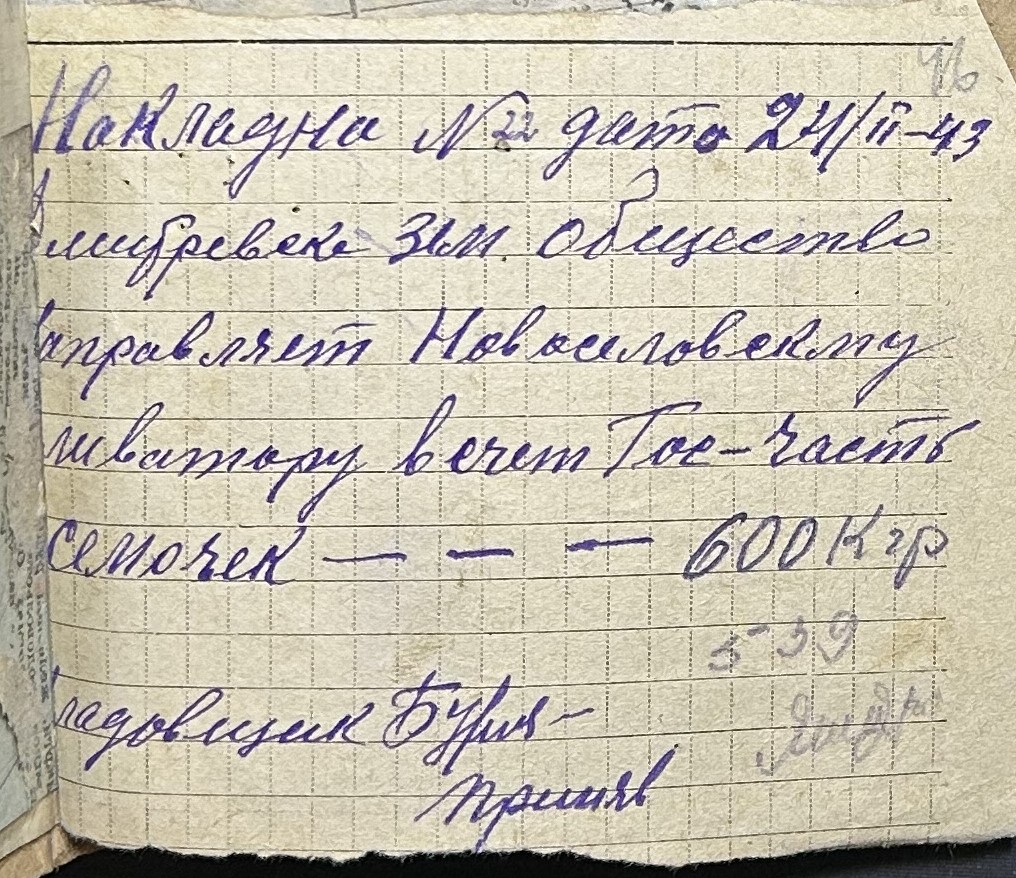 46
Накладна № 22 дато 24/II-43
митревске зем. общество
аправляет Новоселовскму
ливатору в счет Гос-часть
семочек — — — 600 Кгр
539
ладовщик
приняв